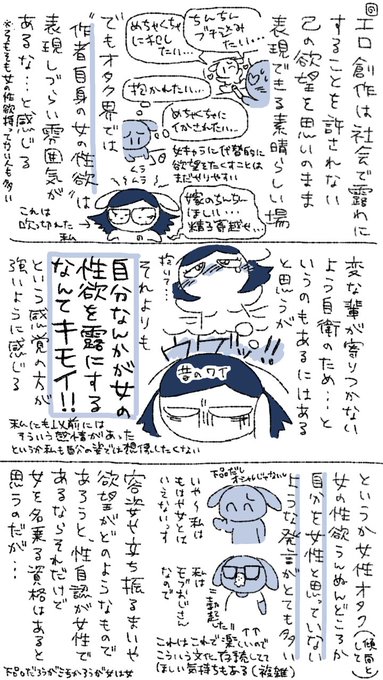 エロ創作は社会で露わに
することを許されない
己の欲望を思いのまま
表現できる素晴らしい場
ちんちん
ブチ込み
たい…
めちゃくちゃ
にNLし
たい…
抱かれたい…
めちゃくちゃに
イかされたい…
女キャラに代替的に
欲望をたくすことは
まだやりやすい
でもオタク界では
“作者自身の女の性欲”は
表現しづらい雰囲気が
ある な…と感じる
ムラ
ムラ
これは
吹っ切れた
私
嫁のちんちん
ほしい…
変な輩が寄りつかない
よう自衛のため…と
いうのもあるにはある
と思うが
抱いて…
それよりも
ウワッ!!
昔のワイ
自分なんかが女の
性欲を露にする
なんてキモイ!!
という感覚の人が
強いように感じる
私にも以前には
そういう感情があった
というか私も自分の姿では想像したくない
というか女性オタク
(傾向として)
女の性欲うんぬんどころか
自分を女性と思っていない
ような発言がとても多い
下品だし
オシャレじゃないし
いや 私は
もはや女とは
いえないッス
私は
モブおじさん
なので
これはこれで楽しいので
こういう文化存続してて
ほしい気持ちもある(複雑)
容姿や立ち振るまいや
欲望がどのようなもので
あろうと、性自認が女性で
あるならそれだけで
女を名乗る資格はあると
思うのだが…
下品だろうがごちかろうが女は女